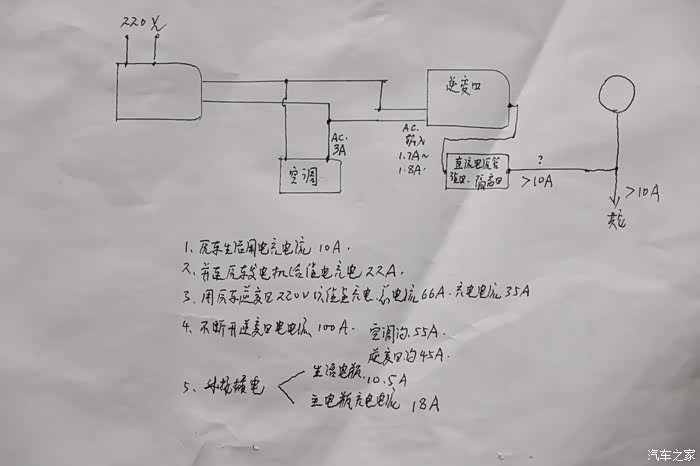 220V
逆变口
AC.
3A
空调
AC.
输入
1.7A~
1.8A.
直流电
隔离口
?
>10A
>10A
1、房车生活用电充电流 10A.
2、行车发电机给值电充电 22A.
3、用房车逆变口220V 充电流66A. 充电电流35A
4、不断开逆变口电电流100A. 空调约.55A.
逆变口.约45A.
5、外接接电
生活电瓶.
10.5A
主电瓶充电电流 18A
汽车之家